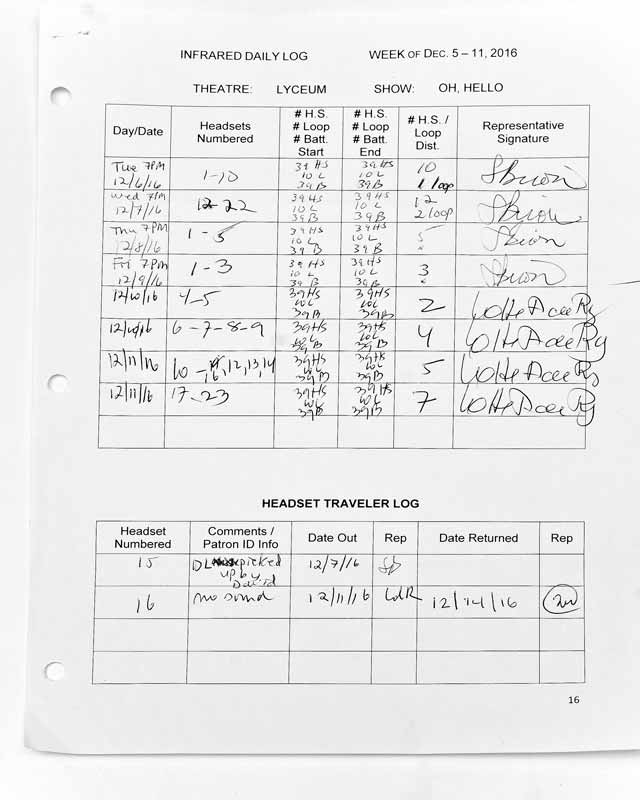 INFRARED DAILY LOG WEEK OF DEC. 5 – 11, 2016
THEATRE: LYCEUM SHOW: OH, HELLO
Day/Date Headsets Numbered # H.S. # Loop # Batt. Start # H.S. # Loop # Batt. End # H.S. / Loop Dist. Representative Signature
Tue 7PM 12/6/16 1-10 39 HS 10 L 39 B 39 HS 10 L 39 B 10 1 loop
Wed 7PM 12/7/16 22 39 HS 10 L 39 B 39 HS 10 L 39 B 12 2 loop
Thu 7PM 12/8/16 1-5 39 HS 10 L 39 B 39 HS 10 L 39 B 5
Fri 7PM 12/9/16 1-3 39 HS 10 L 39 B 39 HS 10 L 39 B 3
12/10/16 4-5 39HS 10L 39B 39HS 10L 39B 2
12/10/16 6-7-8-9 39HS 10L 39B 39HS 10L 39B 4
12/11/16 10 - 12, 13, 14 16 39HS 10L 39B 39HS 10L 39B 5
12/11/16 17-23 39HS 10L 39B 39HS 10L 39B 7
HEADSET TRAVELER LOG
Headset Numbered Comments / Patron ID Info Date Out Rep Date Returned Rep
15 DL picked up by David 12/7/16 SB
16 no sound 12/11/16 LdR 12/14/16
16